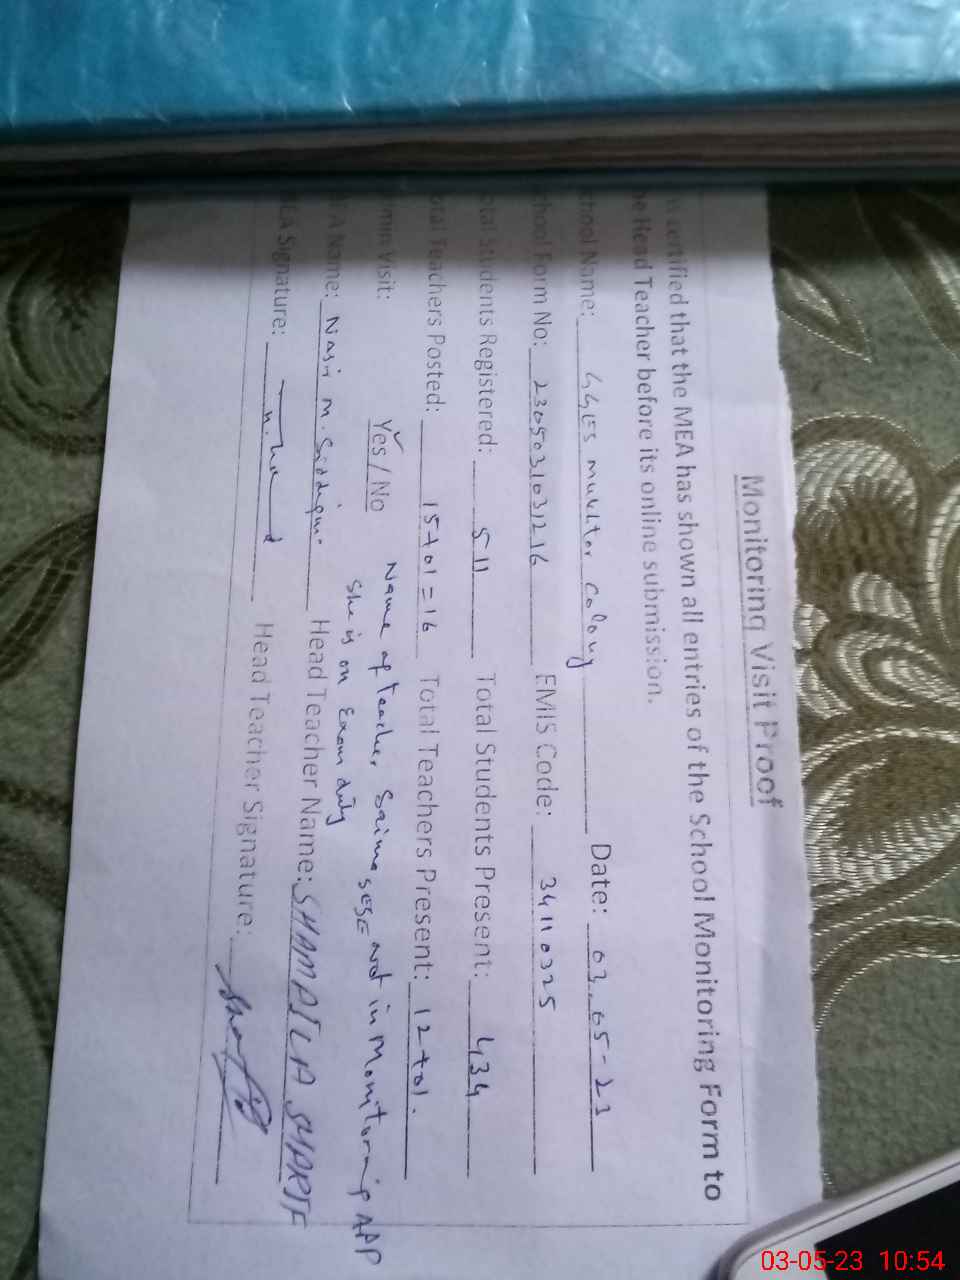 Monitoring Visit Proof
certified that the MEA has shown all entries of the School Monitoring Form to
Head Teacher before its online submission.
School Name: GGES mukhtar colony Date: 03-05-23
School Form No: 2305031031216 EMIS Code: 34110325
Total Students Registered: 511 Total Students Present: 434
Total Teachers Posted: 15+01=16 Total Teachers Present: 12+01.
Visit: Yes / No Name of teacher Saima SESE not in Monitoring APP
She is on Exam duty
MEA Name: Nasir M. Head Teacher Name: SHAMAILA SHARIF
MEA Signature: Head Teacher Signature:
03-05-23 10:54